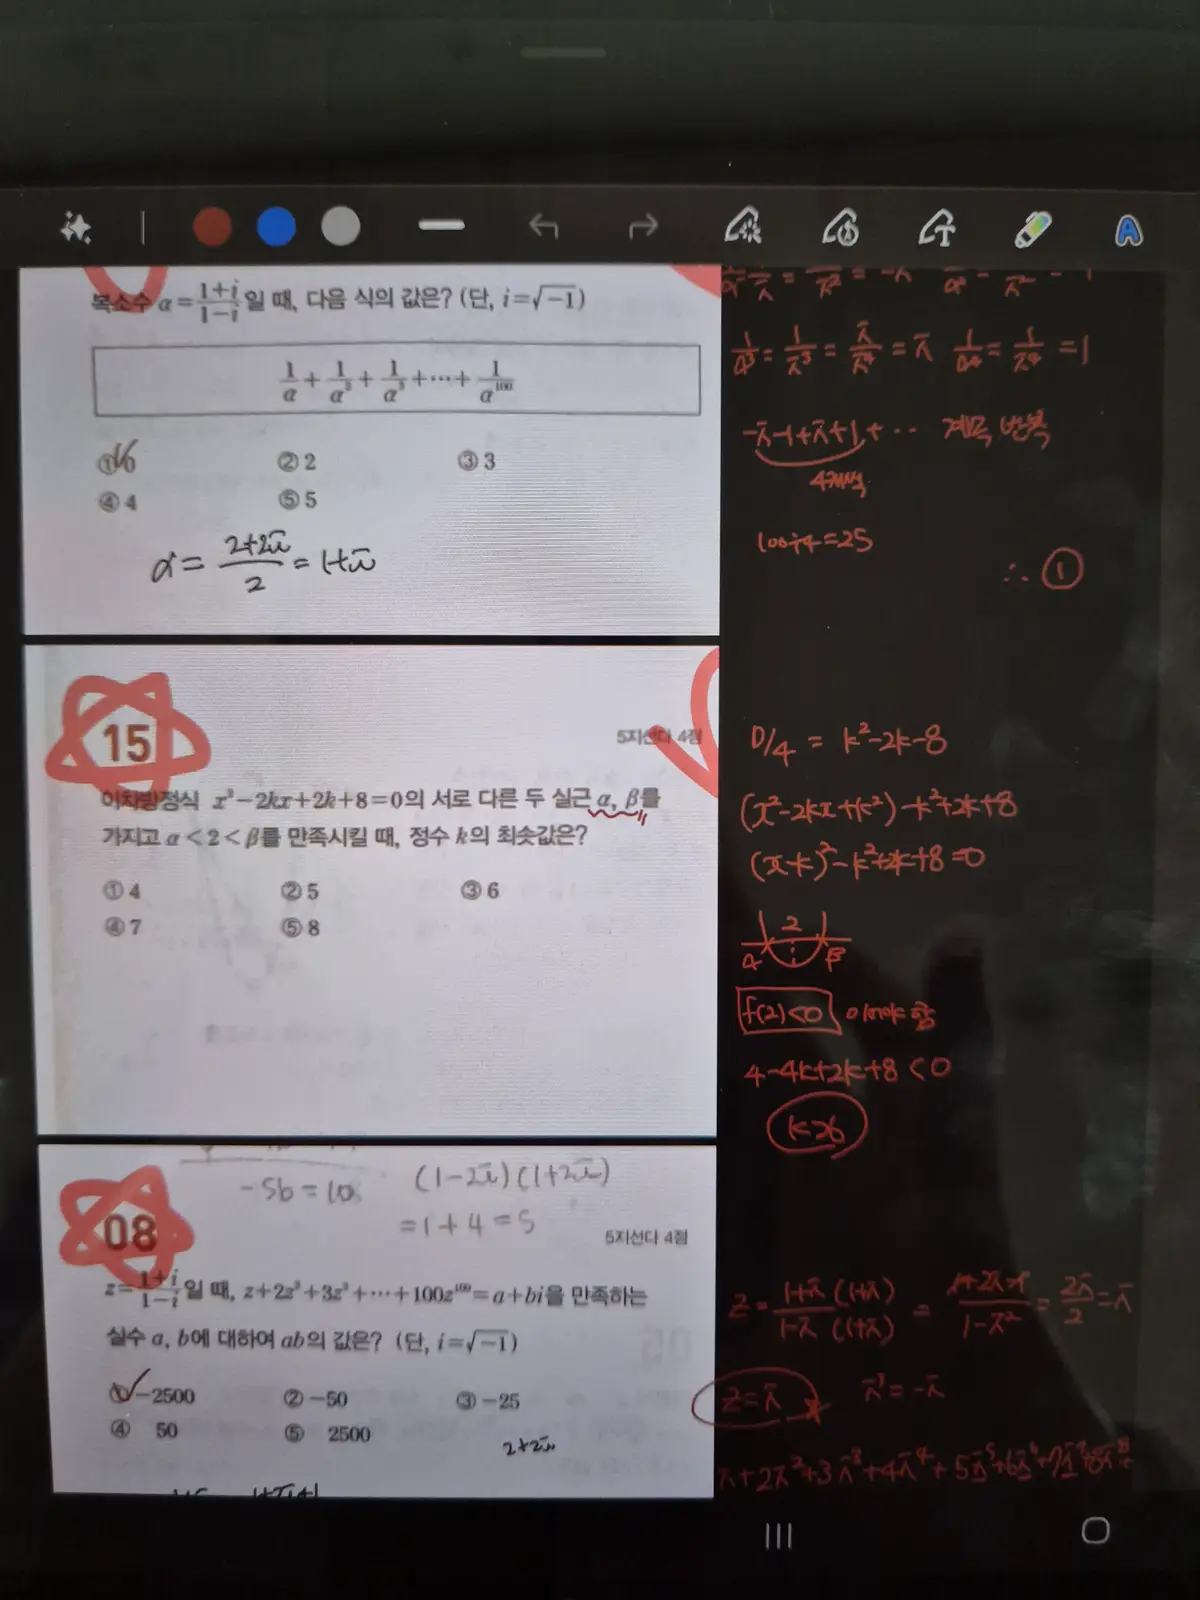 복소수 α = 1+i/1-i 일 때, 다음 식의 값은? (단, i=√-1)
1/α + 1/α² + 1/α³ + ⋯ + 1/α¹⁰⁰
① 0 ② 2 ③ 3
④ 4 ⑤ 5
α = 2+2i/2 = 1+i
1/α³ = 1/i³ = i/i⁴ = i 1/α⁴ = 1/i⁴ = 1
-i-1+i+1+ ⋯ 계속 반복
4개씩
100÷4=25
∴ ①
15
5지선다 4점
이차방정식 x²-2kx+2k+8=0의 서로 다른 두 실근 α, β를
가지고 α<2<β를 만족시킬 때, 정수 k의 최솟값은?
① 4 ② 5 ③ 6
④ 7 ⑤ 8
D/4 = k²-2k-8
(x²-2kx+k²)-k²+2k+8
(x-k)²-k²+2k+8=0
2
α β
f(2)<0 이어야 함
4-4k+2k+8<0
k>6
-5b=10 (1-2i)(1+2i)
=1+4=5
08
5지선다 4점
z = 1+i/1-i 일 때, z+2z²+3z³+⋯+100z¹⁰⁰=a+bi을 만족하는
실수 a, b에 대하여 ab의 값은? (단, i=√-1)
① -2500 ② -50 ③ -25
④ 50 ⑤ 2500
2+2i
z = 1+i (1+i)/1-i (1+i) = 1+2i-1/1-i² = 2i/2 = i
z=i i³=-i
i+2i²+3i³+4i⁴+5i⁵+6i⁶+7i⁷+8i⁸+